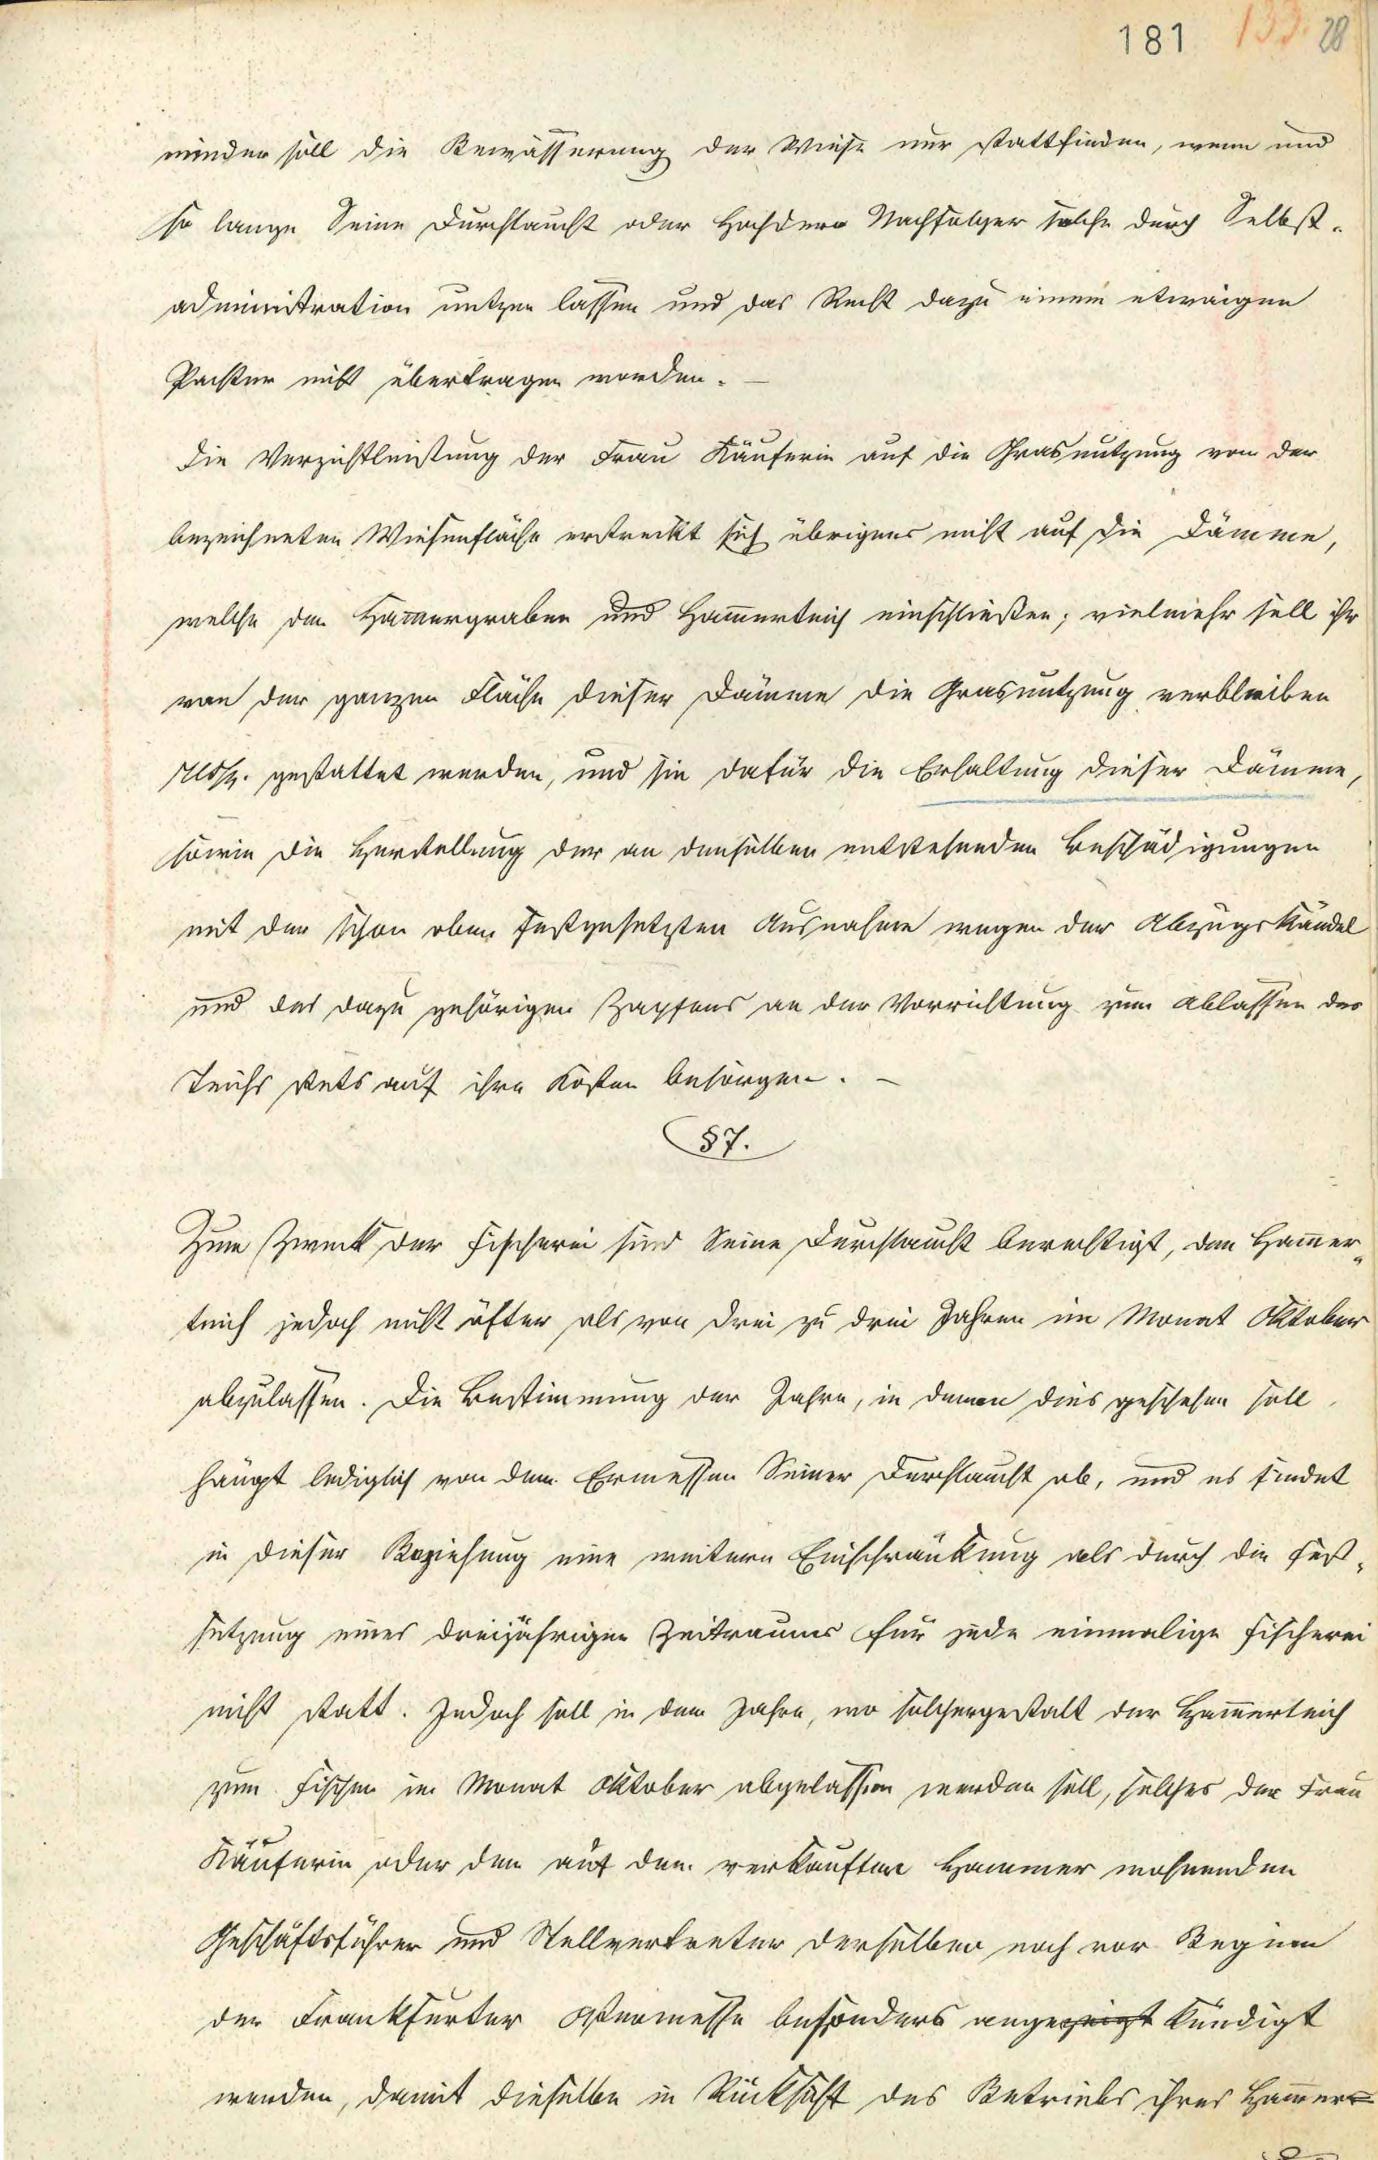 181 133. 28
minder soll die Bewässerung der Wiese nur stattfinden, wenn und
so lange Seine Durchlaucht oder Hochdero Nachfolger solche durch Selbst-
administration nutzen lassen und das Recht dazu einem etwaigen
Pachter nicht übertragen worden. —
Die Verzichtleistung der Frau Käuferin auf die Grasnutzung von der
bezeichneten Wiesenfläche erstreckt sich übrigens nicht auf die Dämme,
welche den Ham̄ergraben und Ham̄erteich einschließen; vielmehr soll ihr
von der ganzen Fläche dieser Dämme die Grasnutzung verbleiben
gestattet werden, und sie dafür die Erhaltung dieser Dämme,
sowie die Herstellung der an denselben entstehenden Beschädigungen
mit der schon oben festgesetzten Ausnahme wegen der Abzugskändel
und des dazu gehörigen Zapfens an der Vorrichtung zum Ablassen des
Teichs stets auf ihre Kosten besorgen. —
§ 7.
Zum Zweck der Fischerei sind Seine Durchlaucht berechtigt, den Ham̄er-
teich jedoch nicht öfter als von drei zu drei Jahren im Monat Oktober
abzulassen. Die Bestimmung der Jahre, in denen dies geschehen soll
hängt lediglich von dem Ermessen Seiner Durchlaucht ab, und es findet
in dieser Beziehung eine weitere Einschränkung als durch die Fest-
setzung eines dreijährigen Zeitraums für jede einmalige Fischerei
nicht statt. Jedoch soll in dem Jahre, wo solchergestalt der Ham̄erteich
zum Fischen im Monat Oktober abgelassen werden soll, solches der Frau
Käuferin oder dem auf dem verkauften Hammer wohnenden
Geschäftsführer und Stellvertreter derselben noch vor Beginn
der Frankfurter Ostermesse besonders angezeigt kündigt
werden, damit dieselbe in Rücksicht des Betriebs ihres Ham̄er=